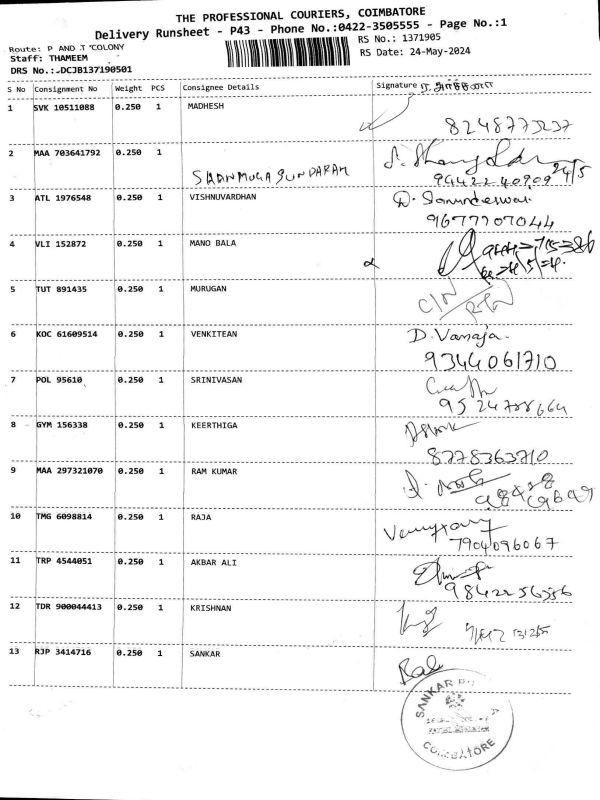 THE PROFESSIONAL COURIERS, COIMBATORE
Delivery Runsheet - P43 - Phone No.:0422-3505555 - Page No.:1
Route: P AND T COLONY
RS No.: 1371905
Staff: THAMEEM
RS Date: 24-May-2024
DRS No.:.DCJB137190501
S No Consignment No Weight PCS Consignee Details Signature
1 SVK 10511088 0.250 1 MADHESH
8248773237
2 MAA 703641792 0.250 1
SHANMUGA SUNDARAM
9442240909 24/5
3 ATL 1976548 0.250 1 VISHNUVARDHAN
9677707044
4 VLI 152872 0.250 1 MANO BALA
5 TUT 891435 0.250 1 MURUGAN
6 KOC 61609514 0.250 1 VENKITEAN D. Vanaja
9344061710
7 POL 95610 0.250 1 SRINIVASAN
9524788664
8 GYM 156338 0.250 1 KEERTHIGA
8778363710
9 MAA 297321070 0.250 1 RAM KUMAR
10 TMG 6098814 0.250 1 RAJA
7904096067
11 TRP 4544051 0.250 1 AKBAR ALI
9842256356
12 TDR 900044413 0.250 1 KRISHNAN
13 RJP 3414716 0.250 1 SANKAR
SANKAR
COIMBATORE